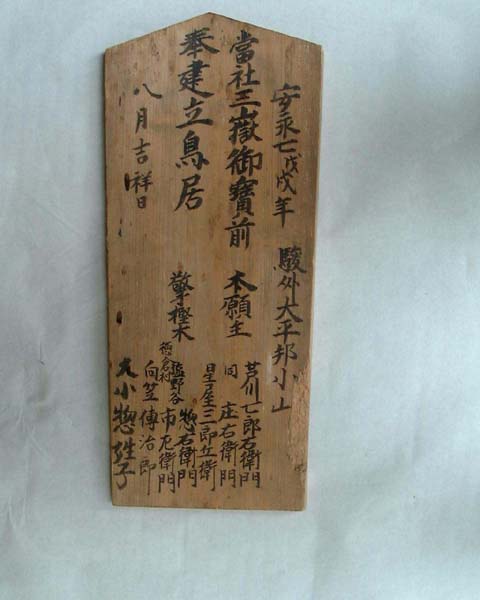 安永七戊戌年 駿州大平邦小山
當社三嶽御寶前 本願主 芦川七郎右衛門
同 庄右衛門
星屋三郎兵衛
奉建立鳥居 擎樫木 塩野谷 惣右衛門
徳倉村 市左衛門
向笠傳治郎
八月吉祥日 大小惣姓子